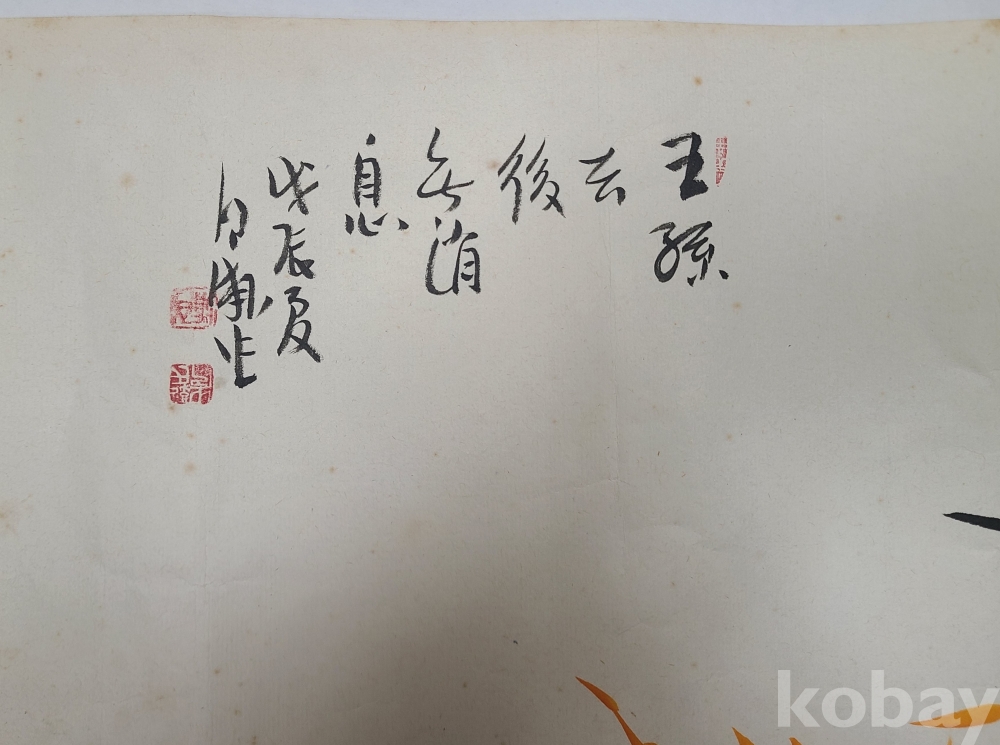 王孫
去
後
無消
息
戊辰夏
kobay